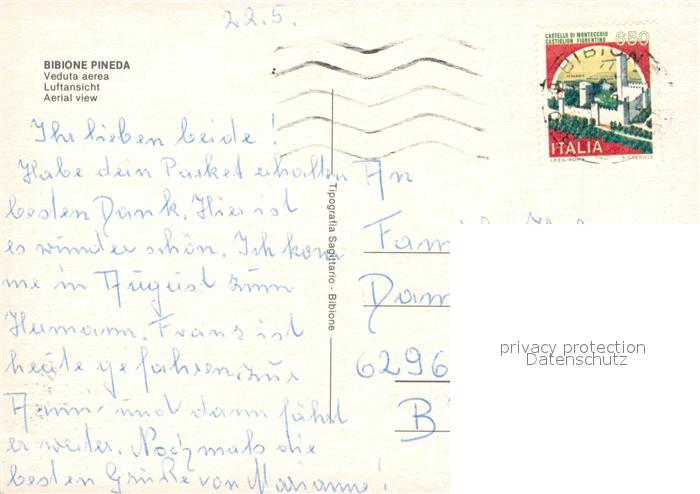 22.5.
BIBIONE PINEDA
Veduta aerea
Luftansicht
Aerial view
CASTELLO DI MONTECCHIO
CASTIGLION FIORENTINO
650
BIBIONE
ITALIA
I.P.Z.S. ROMA
Ihr lieben beide!
Habe dein Pasket erhalten
besten Dank. Hier ist
es wunder schön. Ich kom
me in August zum
Hermann. Franz ist
heute gefahren zur
Anni und dann fährt
er weiter. Nochmals die
besten Grüße von Marianne!
Tipografia Sagittario - Bibione
An
Dam
6296
B
privacy protection
Datenschutz